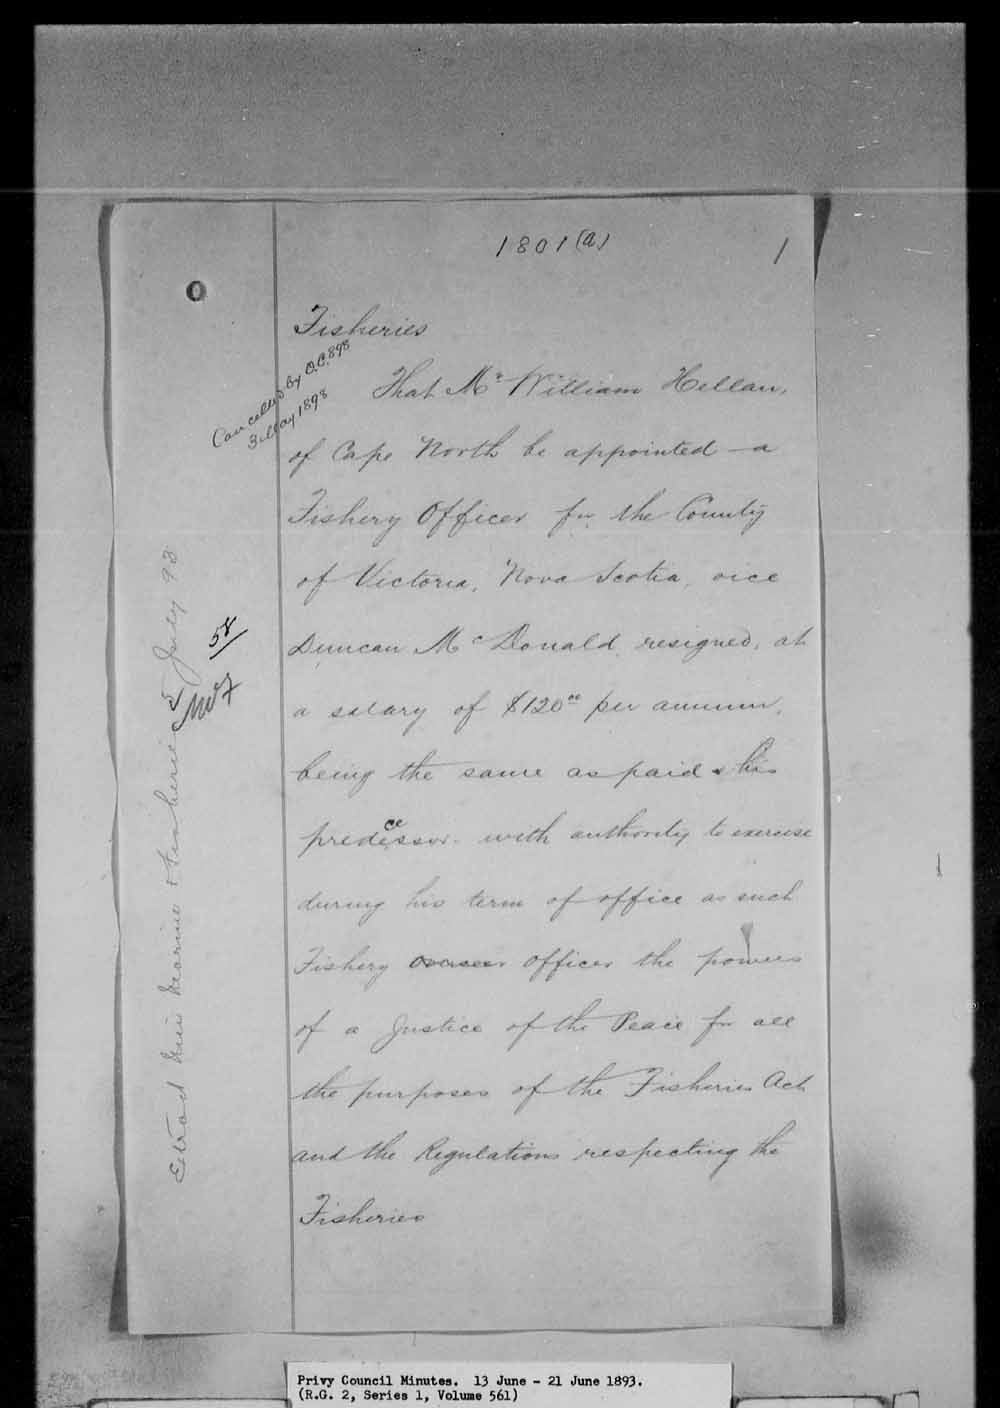 1801(a)
1
Fisheries
Cancelled by O.C. 898
3 May 1898
That Mr William Hellan,
of Cape North be appointed a
Fishery Officer for the County
of Victoria, Nova Scotia, vice
Duncan McDonald resigned, at
a salary of $120.00 per annum,
being the same as paid his
predecessor with authority to exercise
during his term of office as such
Fishery Officer the powers
of a Justice of the Peace for all
the purposes of the Fisheries Act
and the Regulations respecting the
Fisheries
Marine & Fisheries 5 July 93
58
Privy Council Minutes. 13 June - 21 June 1893.
(R.G. 2, Series 1, Volume 561)